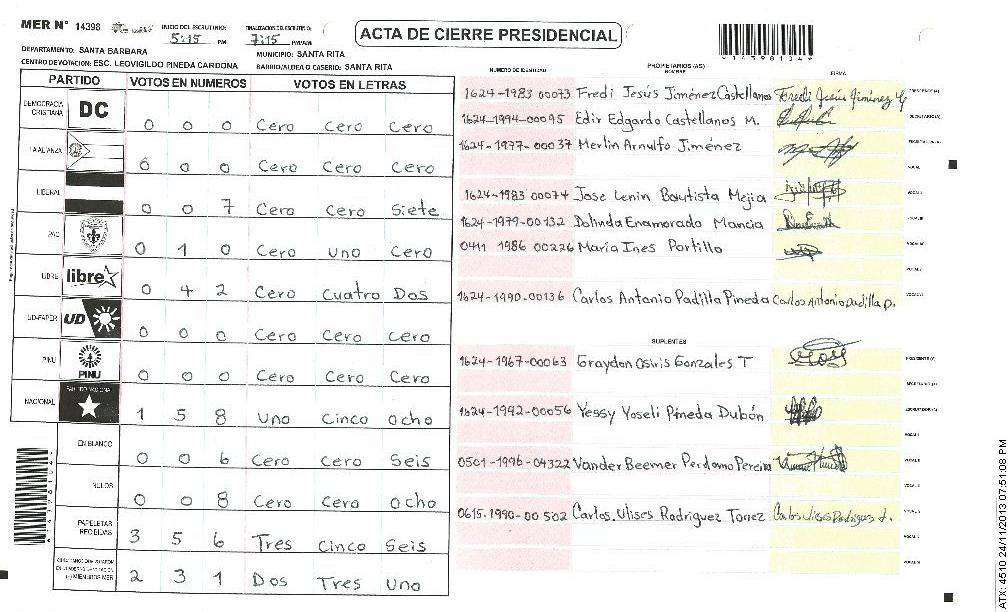 MER N° 14398
INICIO DEL ESCRUTINIO: 5:15 PM
FINALIZACION DEL ESCRUTINIO: 7:15 PM/AM
ACTA DE CIERRE PRESIDENCIAL
*14398104*
DEPARTAMENTO: SANTA BARBARA
MUNICIPIO: SANTA RITA
CENTRO DE VOTACION: ESC. LEOVIGILDO PINEDA CARDONA
BARRIO/ALDEA O CASERIO: SANTA RITA
PARTIDO VOTOS EN NUMEROS VOTOS EN LETRAS
DEMOCRACIA CRISTIANA DC 0 0 0 Cero Cero Cero
LA ALIANZA 0 0 0 Cero Cero Cero
LIBERAL 0 0 7 Cero Cero Siete
PAC 0 1 0 Cero uno Cero
LIBRE libre 0 4 2 Cero Cuatro Dos
UD-FAPER UD 0 0 0 Cero Cero Cero
PINU PINU 0 0 0 Cero Cero Cero
NACIONAL PARTIDO NACIONAL 1 5 8 Uno Cinco ocho
EN BLANCO 0 0 6 Cero Cero Seis
NULOS 0 0 8 Cero Cero ocho
PAPELETAS RECIBIDAS 3 5 6 Tres Cinco Seis
(+) MIEMBROS MER 2 3 1 Dos Tres Uno
PROPIETARIOS (AS)
NUMERO DE IDENTIDAD NOMBRE FIRMA
1624-1983 00073 Fredi Jesús Jiménez Castellanos Fredi Jesus Jiménez PRESIDENTE (A)
1624-1994-00095 Edir Edgardo Castellanos M. SECRETARIO (A)
1624-1977-00037 Merlin Arnulfo Jiménez
1624-1983 00074 Jose Lenin Bautista Mejia
1624-1979-00132 Dolinda Enamorado Mancia
0411 1986 00226 Maria Ines Portillo
1624-1990-00136 Carlos Antonio Padilla Pineda Carlos Antonio padilla p.
SUPLENTES
1624-1967-00063 Graydon Osiris Gonzales T PRESIDENTE (A)
SECRETARIO (A)
1624-1992-00056 Yessy Yoseli Pineda Dubón ESCRUTADOR (A)
0501-1996-04322 Vander Beemer Perdomo Pereira
0615-1990-00502 Carlos Ulises Rodriguez Torrez Carlos Ulises Rodriguez t.
ATX: 4510 24/11/2013 07:51:08 PM